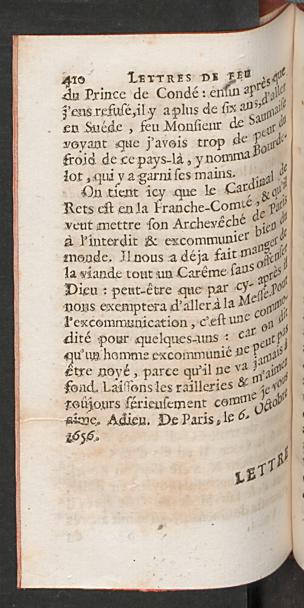 410 LETTRES DE FEU
du Prince de Condé : enfin après que
j'eus refusé, il y a plus de six ans, d'aller
en Suéde, feu Monsieur de Saumaise
voyant que j'avois trop de peur du
froid de ce pays-là, y nomma Bourde-
lot, qui y a garni ses mains.
On tient icy que le Cardinal de
Rets est en la Franche-Comté, & qu'il
veut mettre son Archevêché de Paris
à l'interdit & excommunier bien du
monde. Il nous a déja fait manger de
la viande tout un Carême sans offenser
Dieu : peut-être que par cy-après il
nous exemptera d'aller à la Messe. Pour
l'excommunication, c'est une commo-
dité pour quelques-uns : car on dit
qu'un homme excommunié ne peut pas
être noyé, parce qu'il ne va jamais à
fond. Laissons les railleries & m'aimez
toûjours sérieusement comme je vous
aime. Adieu. De Paris, le 6. Octobre
1656.
LETTRE